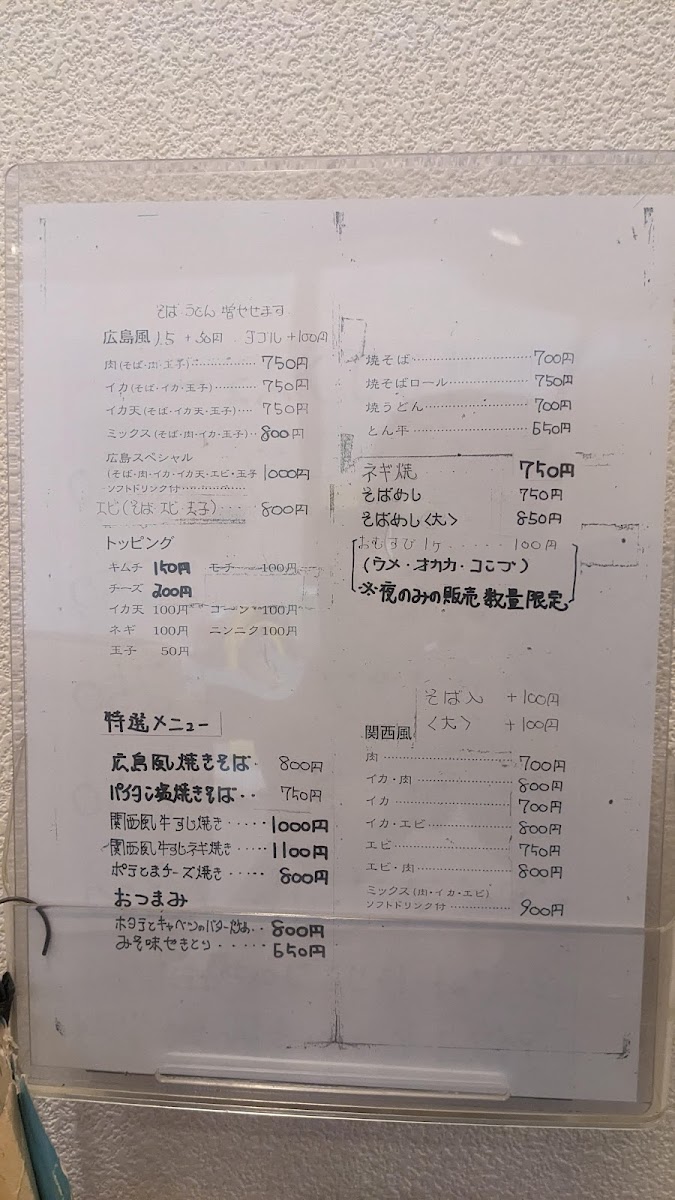 そば うどん 増やせます
広島風 1.5 +50円 ダブル +100円
肉(そば・肉・玉子) 750円
イカ(そば・イカ・玉子) 750円
イカ天(そば・イカ天・玉子) 750円
ミックス(そば・肉・イカ・玉子) 800円
広島スペシャル
(そば・肉・イカ・イカ天・エビ・玉子 1000円
ソフトドリンク付
エビ(そば エビ 玉子) 800円
トッピング
キムチ 150円 モチ 100円
チーズ 200円
イカ天 100円 コーン 100円
ネギ 100円 ニンニク 100円
玉子 50円
特選メニュー
広島風焼きそば 800円
パイタン塩焼きそば 750円
関西風牛すじ焼き 1000円
関西風牛すじネギ焼き 1100円
ポテとまチーズ焼き 800円
おつまみ
ホタテとキャベツのバター炒め 800円
みそ味せきとり 650円
焼そば 700円
焼そばロール 750円
焼うどん 700円
とん平 650円
ネギ焼 750円
そばめし 750円
そばめし〈大〉 850円
おむすび 1ケ 100円
(ウメ・オカカ・コンブ)
※夜のみの販売 数量限定
そば入 +100円
〈大〉 +100円
関西風
肉 700円
イカ・肉 800円
イカ 700円
イカ・エビ 800円
エビ 750円
エビ・肉 800円
ミックス(肉・イカ・エビ)
ソフトドリンク付 900円